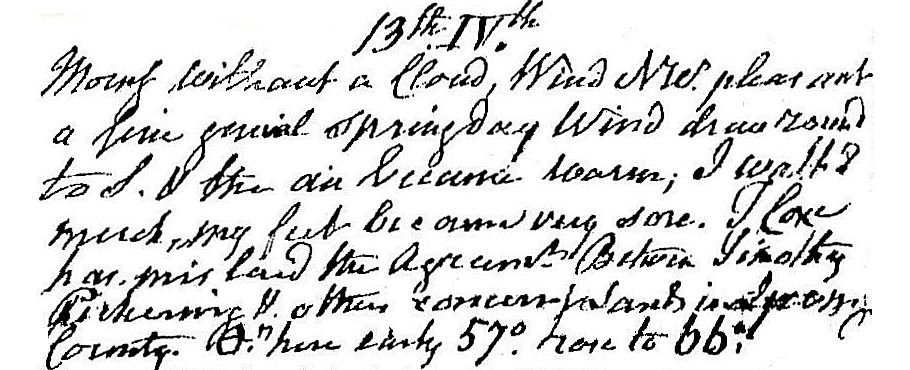 13th. IVth.
Morng without a Cloud, Wind NW. pleasant
a fine genial Springday Wind drew round
to S. & the air became warm; I walk'd
much, my feet became very sore. T Coxe
has mislaid the Agreemt. Between Timothy
Pickering & others concerng Lands in
County. here early 57°. rose to 66°.